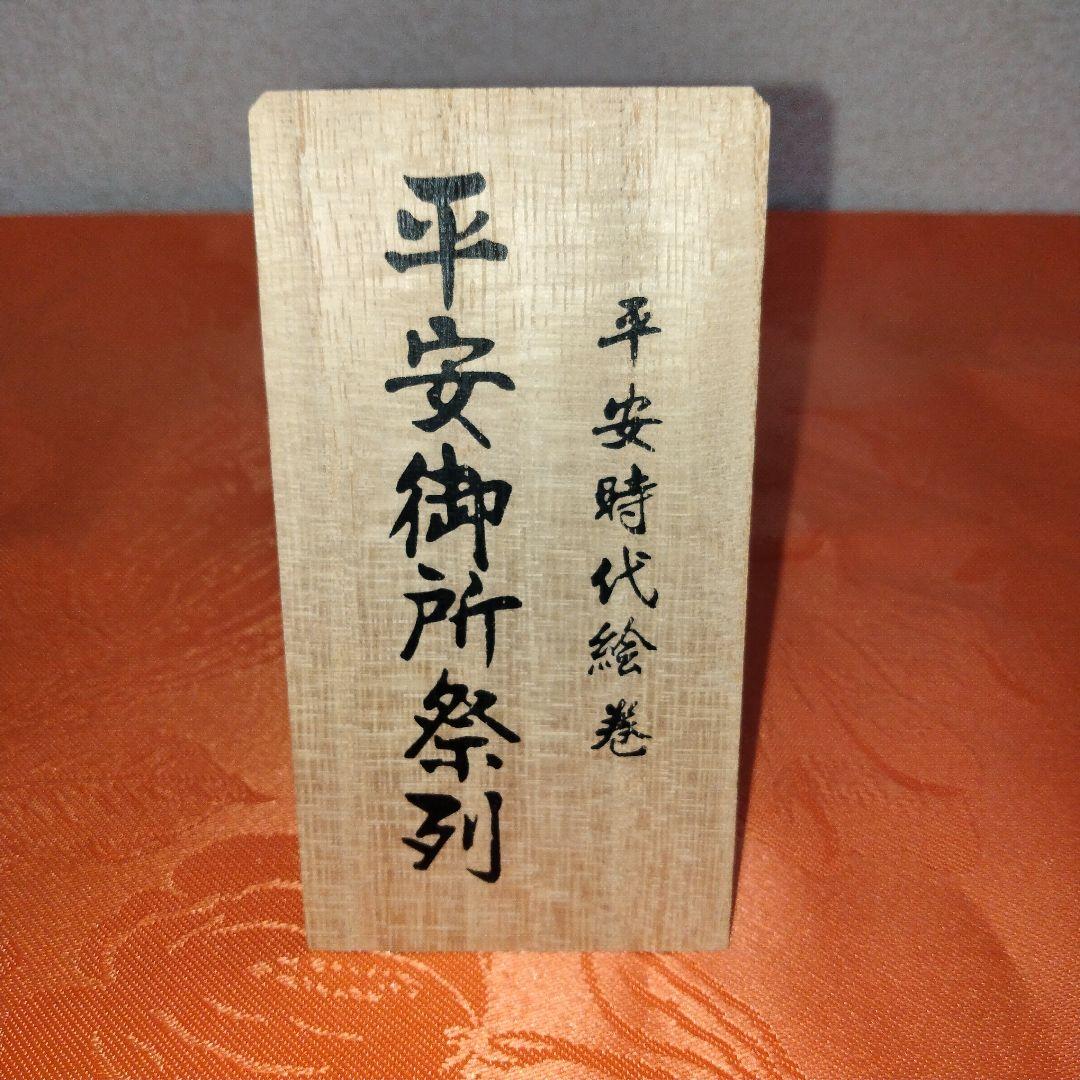 平安時代絵巻
平安御所祭列